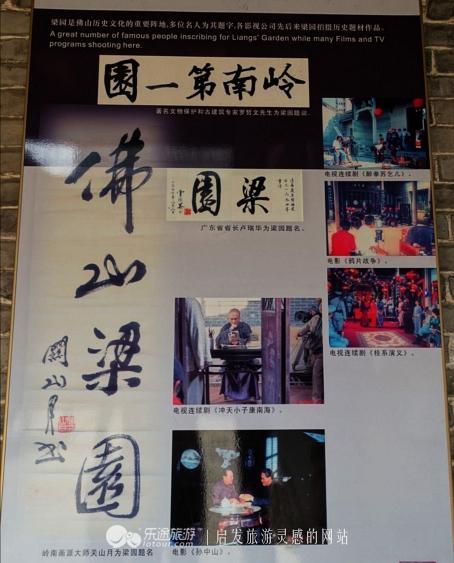 梁园是佛山历史文化的重要阵地,多位名人为其题字、各影视公司先后来梁园拍摄历史题材作品。
A great number of famous people inscribing for Liangs' Garden while many Films and TV
programs shooting here.
園一第南岭
著名文物保护和古建筑专家罗哲文先生为梁园题词.
園梁
广东省省长卢瑞华为梁园题名。
佛山梁園
關山月书
岭南画派大师关山月为梁园题名
电视连续剧《醉拳苏乞儿》。
电影《鸦片战争》。
电视连续剧《桂系演义》。
电视连续剧《冲天小子康南海》。
电影《孙中山》。
乐途旅游
lotour.com
启发旅游灵感的网站